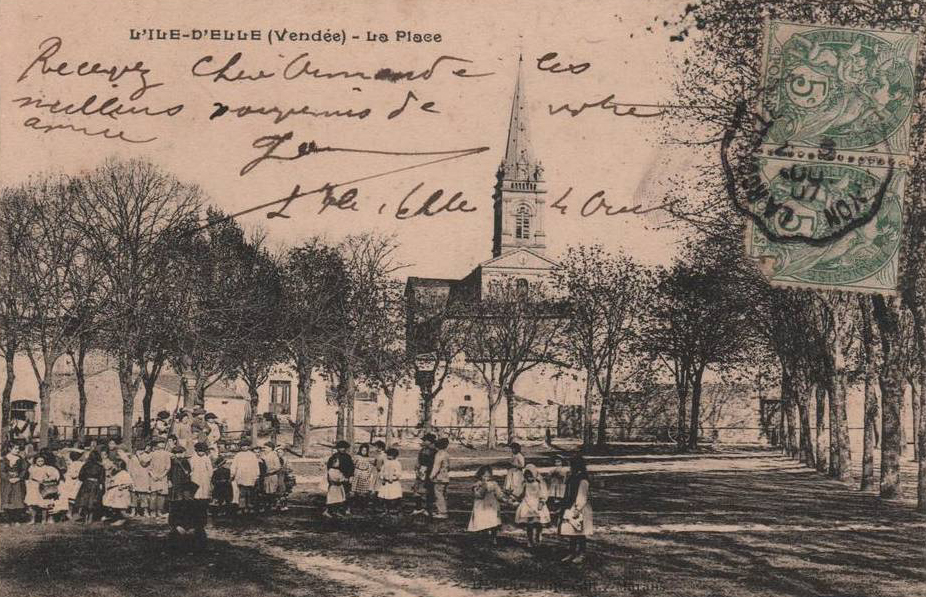 L'ILE-D'ELLE (Vendée) - La Place
Recevez Chère Armande les
meilleurs souvenirs de votre
amie
L'Ile d'Elle 4
RÉPUBLIQUE
5c
5c